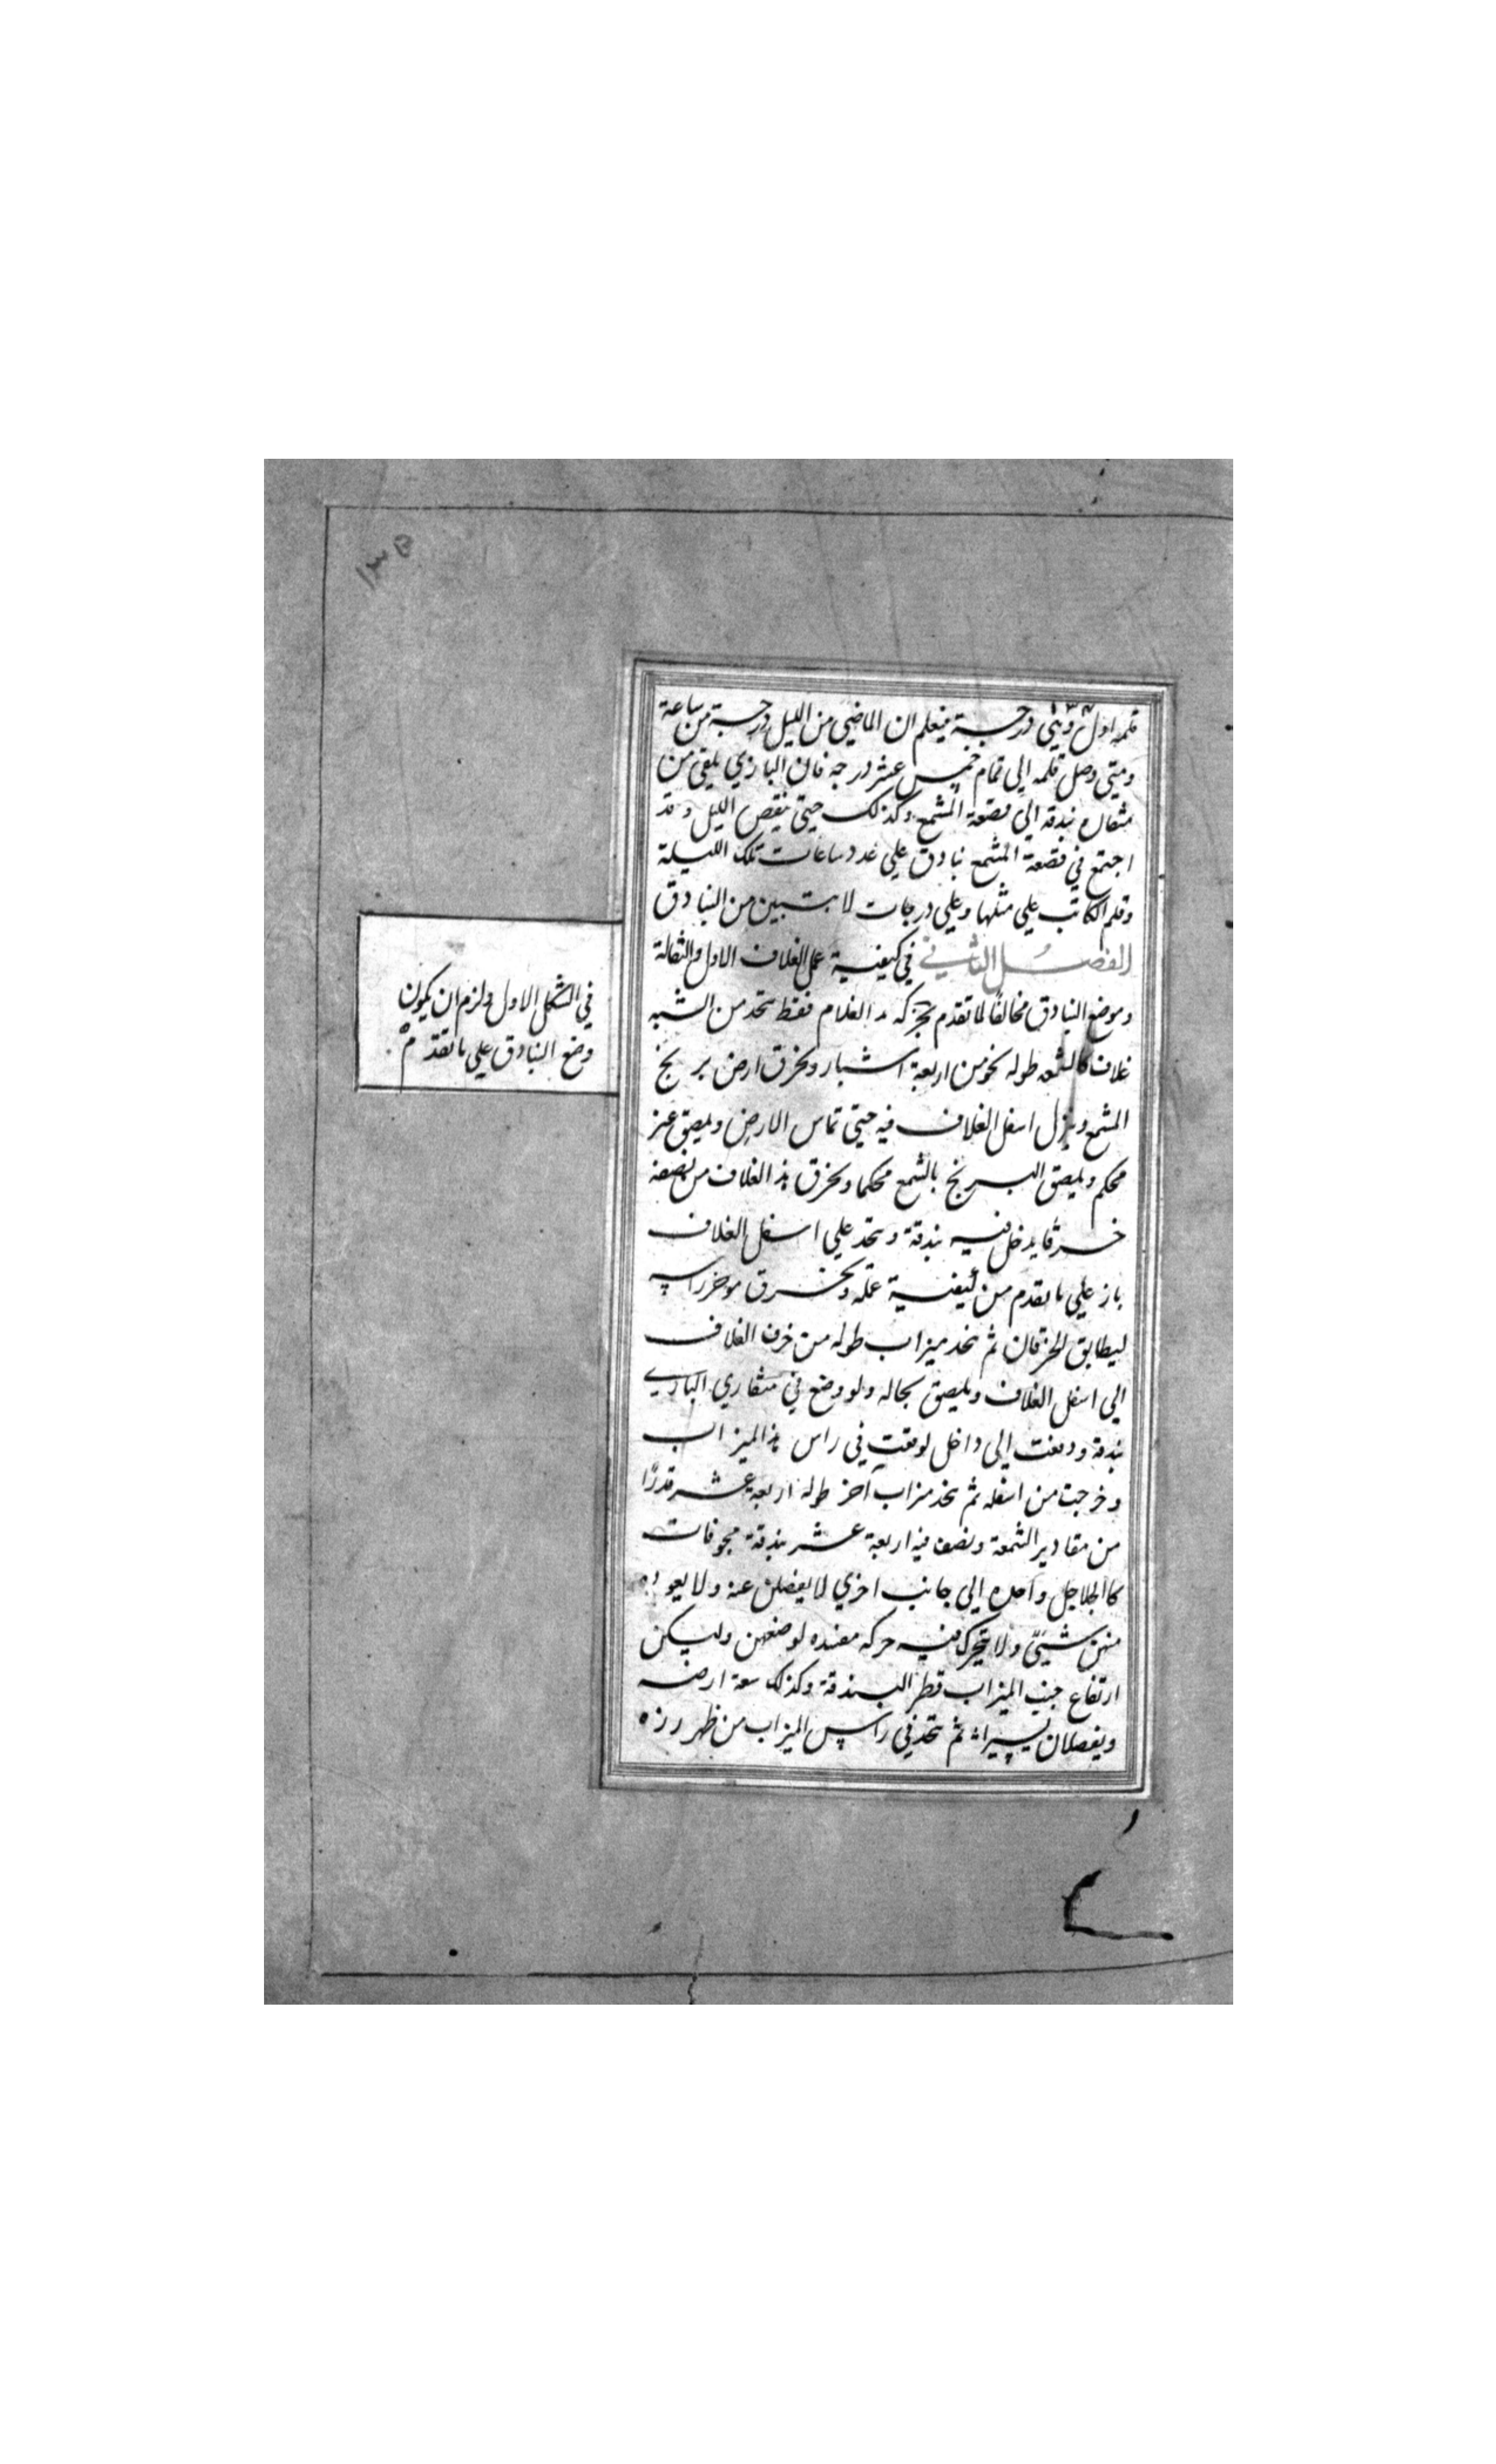 ١٣٥
١٣٤
قلمه اول وهي درجة فيعلم ان الماضي من الليل درجة من ساعة
ومتي وصل قلمه الي تمام خمس عشر درجه فان البازي يلقي من
منقاره بندقه الي قصعة المشمع وكذلك حتي ينقص الليل وقد
اجتمع في قصعة المشمع بنادق علي عدد ساعات تلك الليلة
وقلم الكاتب علي مثلها وعلي درجات لا تتبين من البنادق
الفصل الثاني في كيفية عمل الغلاف الاول والثقالة
وموضع البنادق مخالفا لما تقدم بحركه يد الغلام فقط تتخد من الشبه
غلاف كالشمعه طوله نحو من اربعة اشبار ويخرق ارض بربخ
المشمع وينزل اسفل الغلاف فيه حتي تماس الارض ويلصق غير
محكم ويلصق البربخ بالشمع محكما ويخرق هذا الغلاف من نصفه
خرقا يدخل فيه بندقة وتتخد علي اسفل الغلاف
باز علي ما تقدم من كيفية عمله ويخرق موخر راسه
ليطابق الخرقان ثم يتخد ميزاب طوله من خرق الغلاف
الي اسفل الغلاف ويلصق بحاله ولو وضع في منقاري البازي
بندقة ودفعت الي داخل لوقعت في راس هذا الميزاب
وخرجت من اسفله ثم يتخد ميزاب آخر طوله اربعة عشر قدرًا
من مقادير الشمعة ونصف فيه اربعة عشر بندقة مجوفات
كالجلاجل واحده الي جانب اخري لا يفضلن عنه ولا يعوزه
منهن شيئ ولا تتحرك فيه حركه مفسده لوضعهن وليكن
ارتفاع جنب الميزاب قطر البندقة وكذلك سعة ارضه
ويفصلان يسيرا ثم تتخد في راس الميزاب من ظهر رزه
في الشكل الاول ولزم ان يكون
وضع البنادق علي ما تقدم